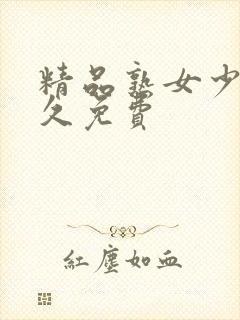 精品熟女少
久免費
紅塵如血